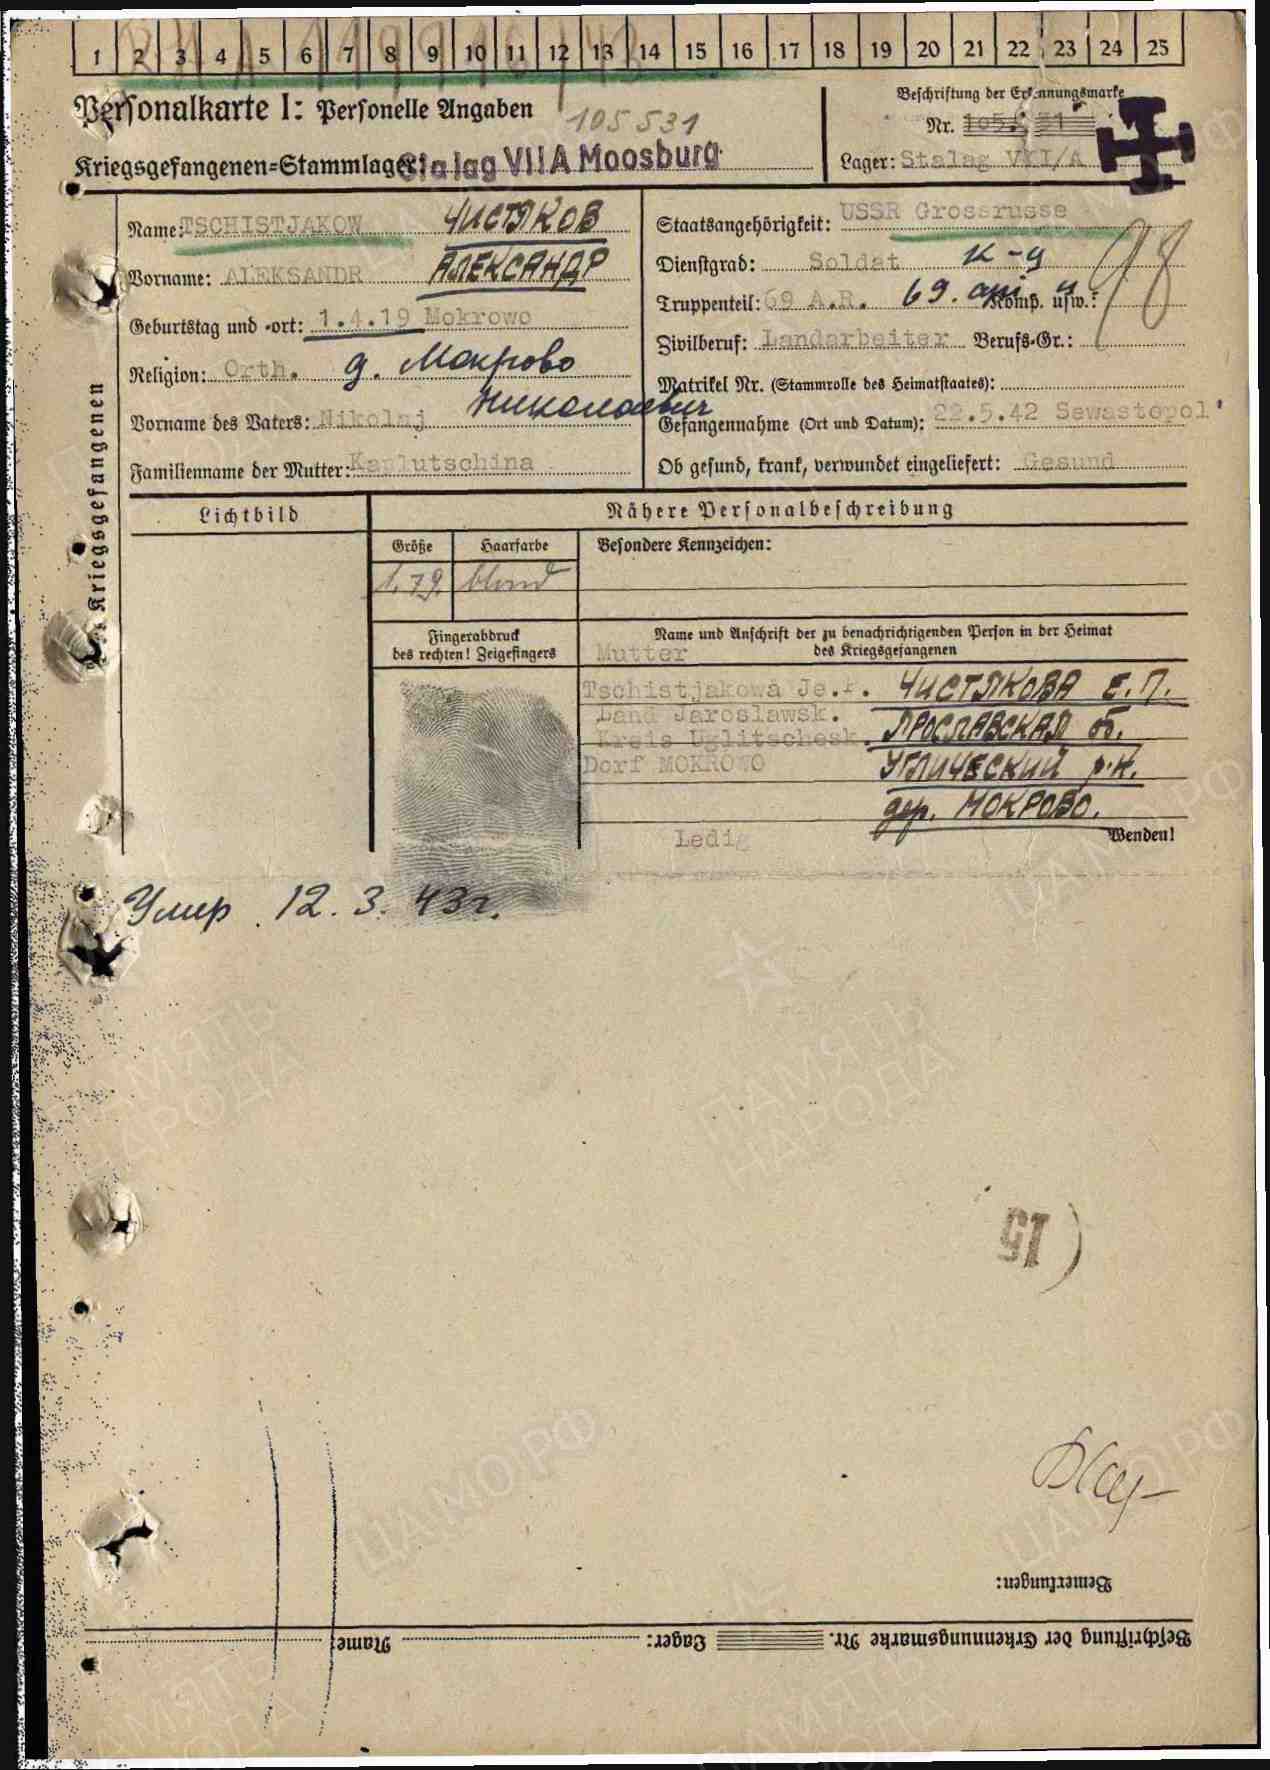 1 2 3 4 5 6 7 8 9 10 11 12 13 14 15 16 17 18 19 20 21 22 23 24 25
Personalkarte I: Personelle Angaben
105531
Beschriftung der Erkennungsmarke
Nr. 105531
Kriegsgefangenen=Stammlager: Stalag VII A Moosburg
Lager: Stalag VII/A
Name: TSCHISTJAKOW ЧИСТЯКОВ
Staatsangehörigkeit: USSR Grossrusse
Vorname: ALEKSANDR АЛЕКСАНДР
Dienstgrad: Soldat к-ц
98
Truppenteil: 69 A.R. 69. арт п. Komp. usw.:
Geburtstag und -ort: 1.4.19 Mokrowo
Zivilberuf: Landarbeiter Berufs-Gr.:
Religion: Orth. д. Мокрово
Matrikel Nr. (Stammrolle des Heimatstaates):
Vorname des Vaters: Nikolaj Николаевич
Gefangennahme (Ort und Datum): 22.5.42 Sewastopol
Familienname der Mutter: Kaplutschina
Ob gesund, krank, verwundet eingeliefert: Gesund
Kriegsgefangenen
Lichtbild
Nähere Personalbeschreibung
Größe Haarfarbe Besondere Kennzeichen:
1.79. blond
Fingerabdruck
des rechten! Zeigefingers
Name und Anschrift der zu benachrichtigenden Person in der Heimat
des Kriegsgefangenen
Mutter
Tschistjakowa Je.P. ЧИСТЯКОВА Е.П.
Land Jaroslawsk. ЯРОСЛАВСКАЯ об.
Kreis Uglitschesk. УГЛИЧЕСКИЙ р-н.
Dorf MOKROWO дер. МОКРОВО.
Ledig
Wenden!
Умер. 12.3.43г.
15
Bemerkungen:
Beschriftung der Erkennungsmarke Nr. Lager: Name:
ПАМЯТЬ
НАРОДА
ЦАМО.РФ